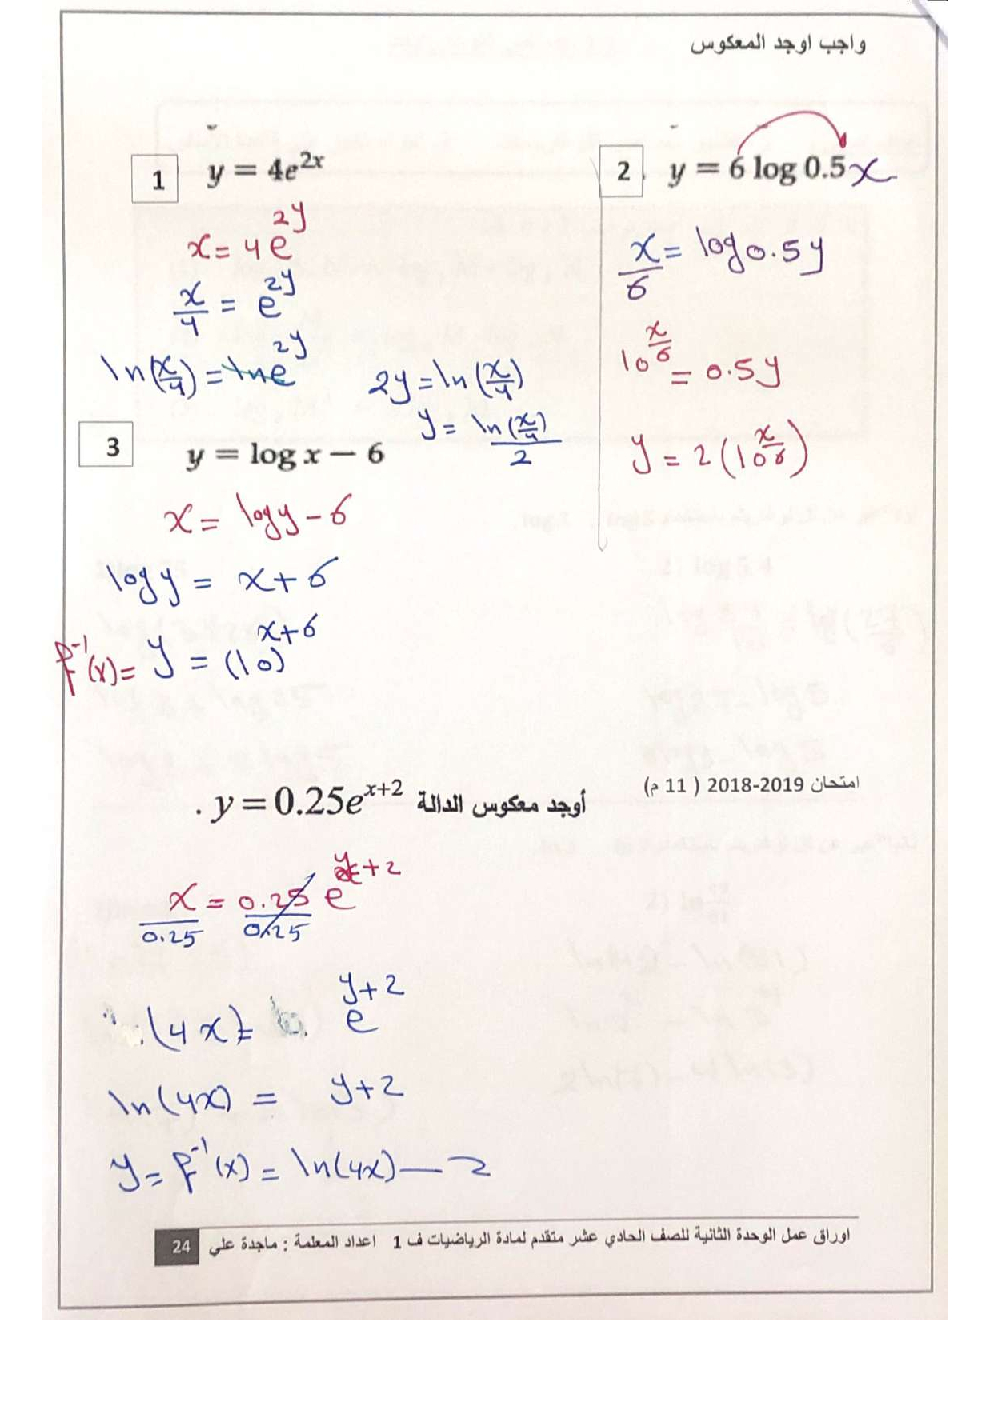 واجب اوجد المعكوس
1 y = 4e^{2x}
x = 4e^{2y}
x/4 = e^{2y}
ln(x/4) = lne^{2y}
2y = ln(x/4)
y = ln(x/4)/2
2 . y = 6 log 0.5x
x/6 = log 0.5y
10^{x/6} = 0.5y
y = 2(10^{x/6})
3 y = log x − 6
x = logy - 6
logy = x+6
f^{-1}(x) = y = (10)^{x+6}
امتحان 2019-2018 ( 11 م)
أوجد معكوس الدالة y = 0.25e^{x+2} .
x/0.25 = 0.25/0.25 e^{y+2}
(4x) = e^{y+2}
ln(4x) = y+2
y = f^{-1}(x) = ln(4x) - 2
اوراق عمل الوحدة الثانية للصف الحادي عشر متقدم لمادة الرياضيات ف 1 اعداد المعلمة : ماجدة علي 24